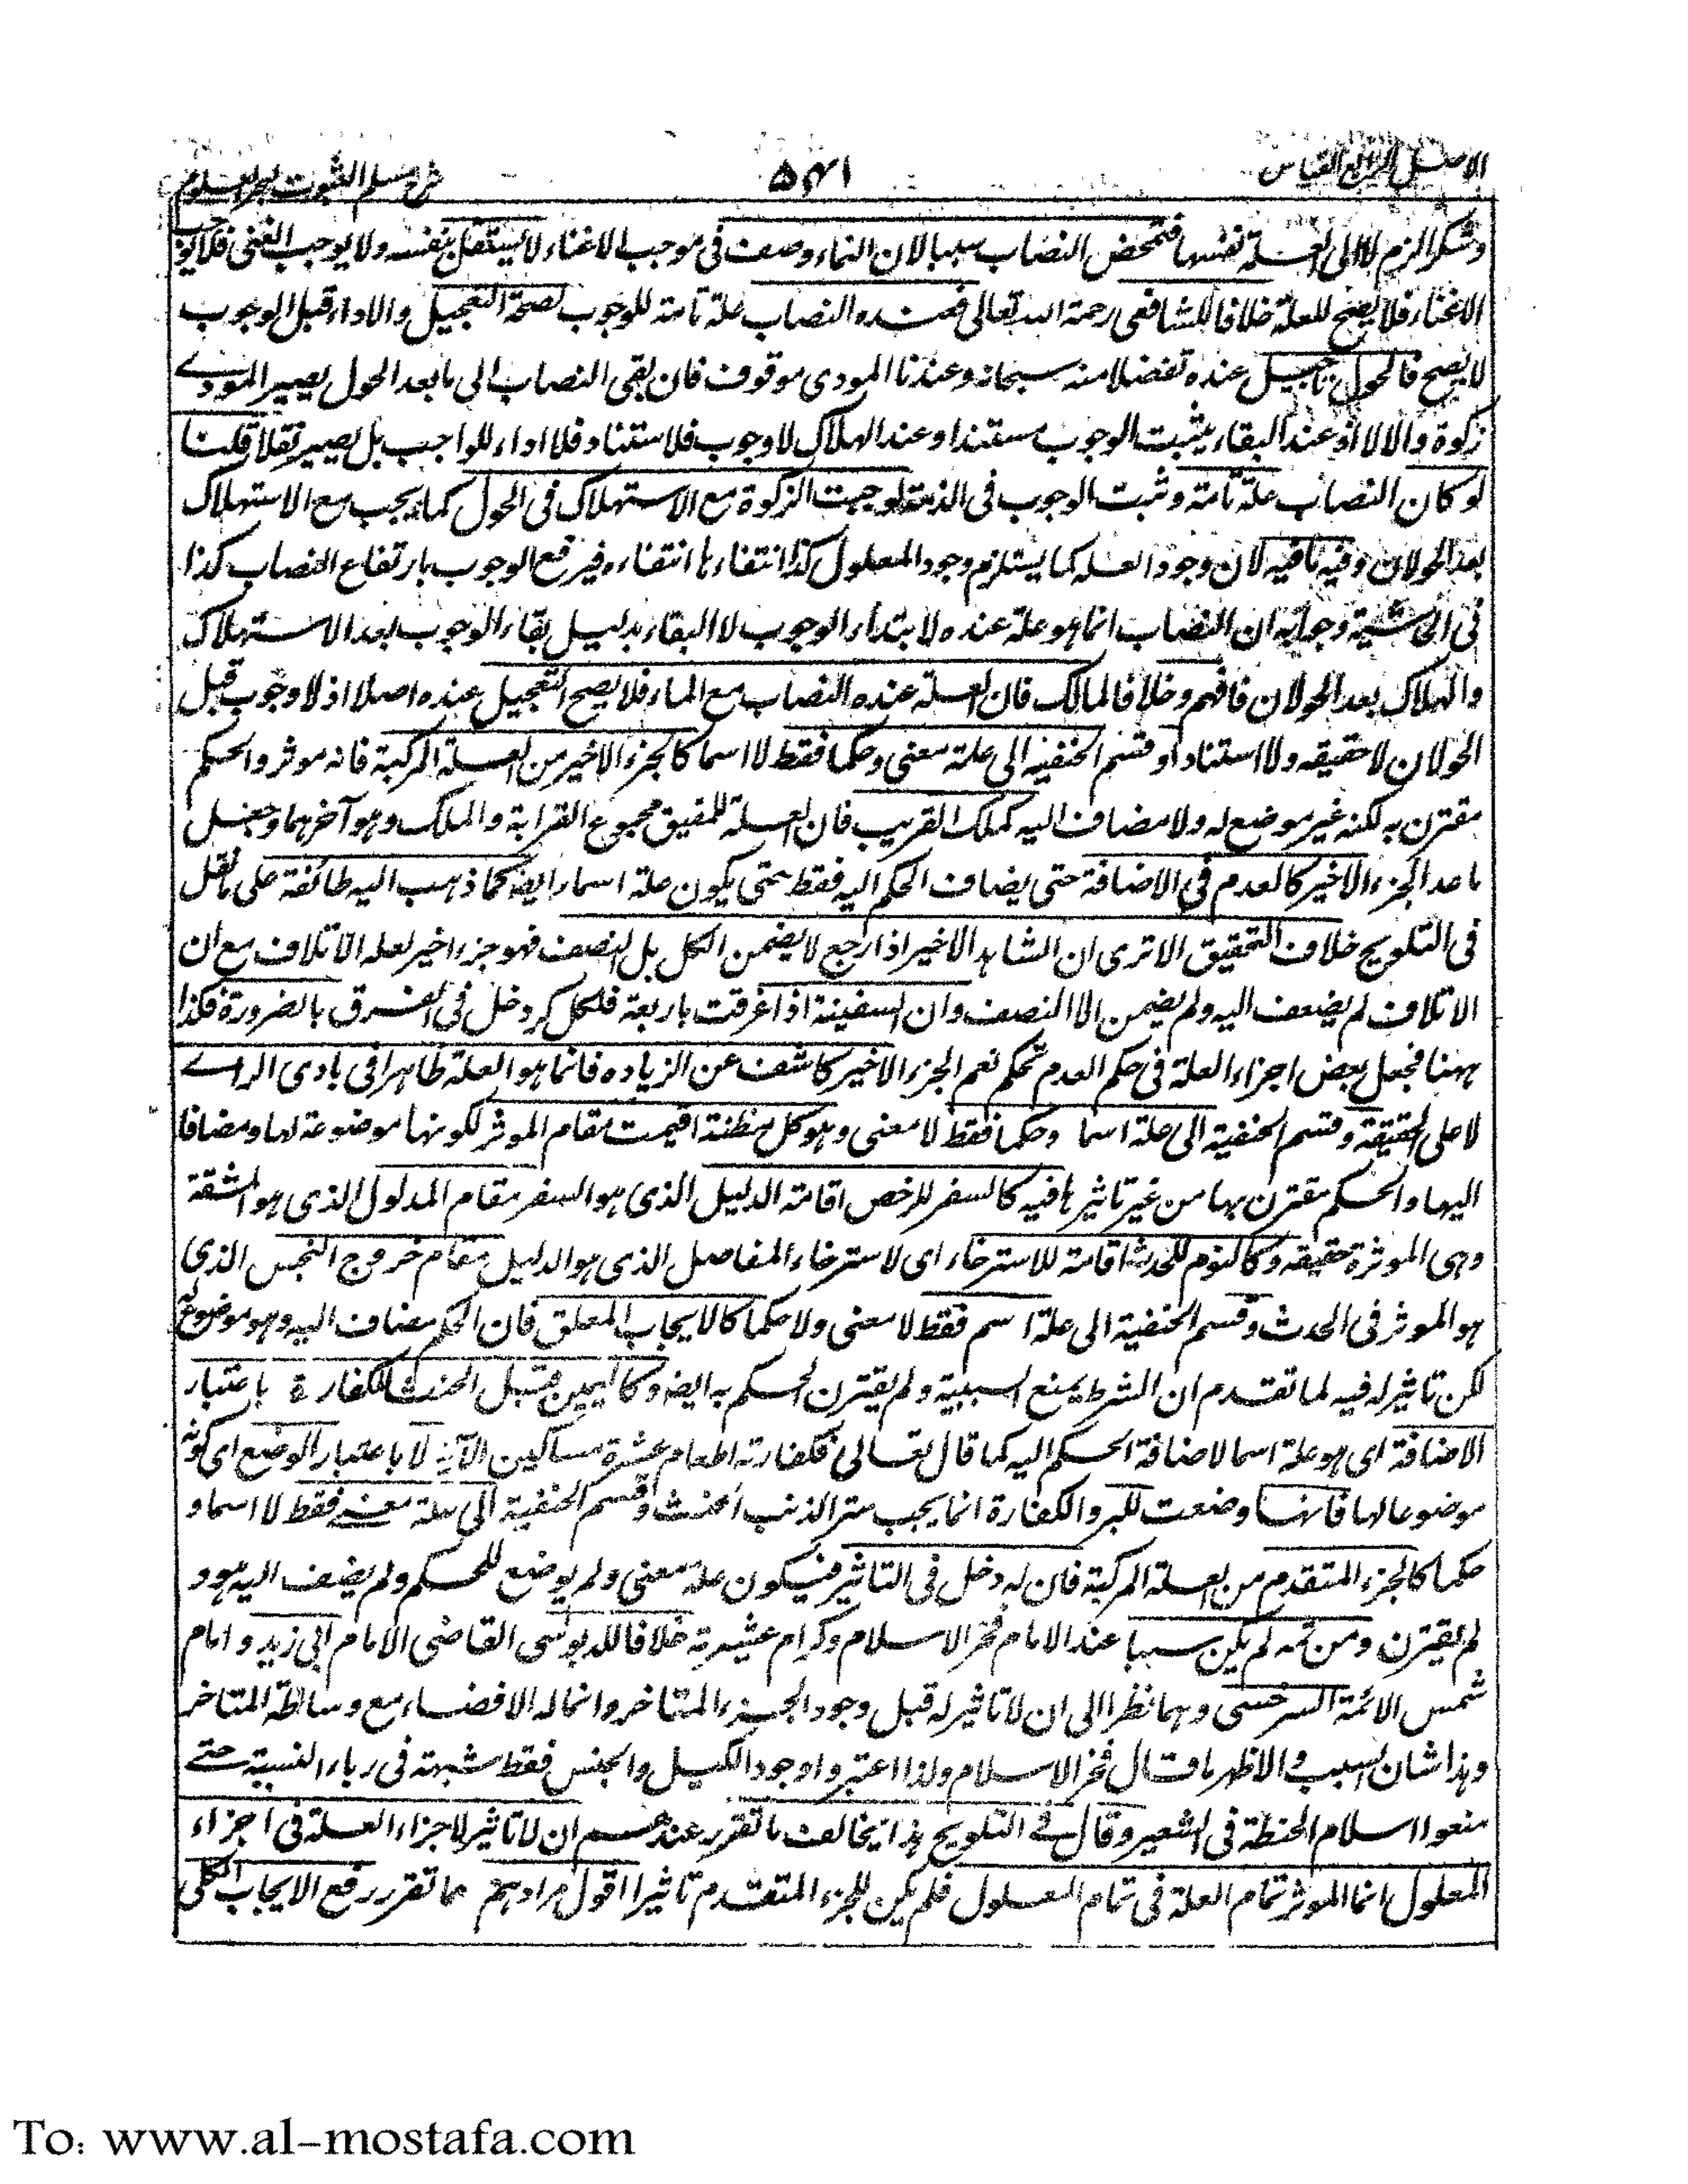 الاصل الرابع القياس
۵۴۱
شرح مسلم الثبوت لبحر العلوم
وشكرا لزم لا الى العلة نفسها فتمحض النصاب سببا لان النماء وصف فى موجب الاغناء لا يستقل بنفسه ولا يوجب الغنى فلا يوجب
الاغناء فلا يصح للعلة خلافا للشافعى رحمة الله تعالى فعنده النصاب علة تامة للوجوب لصحة التعجيل والاداء قبل الوجوب
لا يصح فالحول تاجيل عنده تفضلا منه سبحانه وعندنا المودى موقوف فان بقى النصاب الى ما بعد الحول يصير المودے
زكوة والا لا اذ عند البقاء يثبت الوجوب مستندا وعند الهلاك لا وجوب فلا استناد فلا اداء للواجب بل يصير نفلا قلنا
لو كان النصاب علة تامة وثبت الوجوب فى الذمة لوجبت الزكوة مع الاستهلاك فى الحول كما يجب مع الاستهلاك
بعد الحولان وفيه ما فيه لان وجود العلة كما يستلزم وجود المعلول كذا انتفاءها انتفاءه فيرتفع الوجوب بارتفاع النصاب كذا
فى الحاشية وجوابه ان النصاب انما هو علة عنده لابتداء الوجوب لا البقاء بدليل بقاء الوجوب بعد الاستهلاك
والهلاك بعد الحولان فافهم وخلافا لمالك فان العلة عنده النصاب مع الماء فلا يصح التعجيل عنده اصلا اذ لا وجوب قبل
الحولان لا حقيقه ولا استنادا وقسم الحنفيه الى علة معنى وحكما فقط لا اسما كالجزء الاخير من العلة المركبة فانه موثر والحكم
مقترن به لكنه غير موضع له ولا مضاف اليه كملك القريب فان العلة للعتيق مجموع القرابة والملك وهو آخرهما وجعل
ما عدا الجزء الاخير كالعدم فى الاضافة حتى يضاف الحكم اليه فقط حتى يكون علة اسما ايضا كما ذهب اليه طائفة على ما نقل
فى التلويح خلاف التحقيق الا ترى ان الشاهد الاخير اذا رجع لا يضمن الكل بل النصف فهو جزء اخير لعلة الاتلاف مع ان
الاتلاف لم يضف اليه ولم يضمن الا النصف وان السفينة اذا غرقت باربعة فلكل كر دخل فى الغرق بالضرورة فكذا
ههنا فجعل بعض اجزاء العلة فى حكم العدم تحكم نعم الجزء الاخير كاشف عن الزياده فانما هو العلة ظاهرا فى بادى الراے
لا على الحقيقة وقسم الحنفية الى علة اسما وحكما فقط لا معنى وهو كل مظنة اقيمت مقام الموثر لكونها موضوعة لها ومضافا
اليها والحكم مقترن بها من غير تاثيرها فيه كالسفر للرخص اقامة الدليل الذى هو السفر مقام المدلول الذى هو المشقة
وهى الموثرة حقيقه وكالنوم للحدث اقامة للاسترخاء اى لاسترخاء المفاصل الذى هو الدليل مقام خروج النجس الذى
هو الموثر فى الحدث وقسم الحنفية الى علة اسم فقط لا معنى ولا حكما كالايجاب المعلق فان الحكم مضاف اليه وهو موضوع
لكن تاثير له فيه لما تقدم ان الشرط يمنع السببية ولم يقترن الحكم به ايضا وكاليمين قبل الحنث للكفارة باعتبار
الاضافة اى هو علة اسما لاضافة الحكم اليه كما قال تعالى فكفارته اطعام عشرة مساكين الآية لا باعتبار الوضع اى كونه
موضوعا لها فانها وضعت للبر والكفارة انما يجب ستر الذنب الحنث وقسم الحنفية الى علة معنے فقط لا اسما و
حكما كالجزء المتقدم من العلة المركبة فان له دخل فى التاثير فيكون علة معنى ولم يوضع للحكم ولم يضف اليه هو و
لم يقترن ومن ثمه لم يكن سببا عند الامام فخر الاسلام وكرام عشيرته خلافا للدبوسى القاضى الامام ابى زيد و امام
شمس الائمة السرخسى وهما نظرا الى ان لا تاثير له قبل وجود الجزء المتاخر وانما له الافضاء مع وساطة المتاخر
وهذا شان السبب والاظهر ما قال فخر الاسلام ولذا اعتبروا وجود الكيل والجنس فقط شبهة فى رباء النسيية حتے
منعوا اسلام الحنطة فى الشعير وقال فے التلويح هذا يخالف ما تقرر عندهم ان لا تاثير لاجزاء العلة فى اجزاء
المعلول انما الموثر تمام العلة فى تمام المعلول فلم يكن للجزء المتقدم تاثيرا اقول مرادهم مما تقرر رفع الايجاب الكلى
To: www.al-mostafa.com